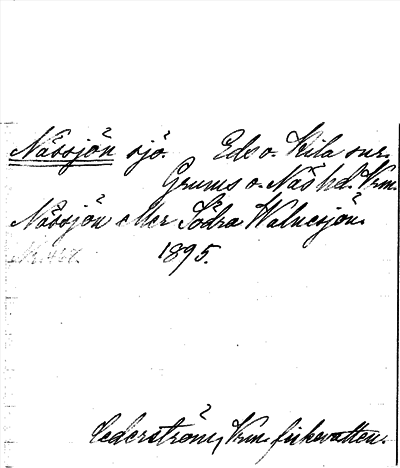 Nässjön sjö. Eds o. Kila snr.
Grums o. Näs hd. Vrm.
Nässjön eller Södra Walnesjön.
1895.
Cederström, Vrm. fiskevatten.